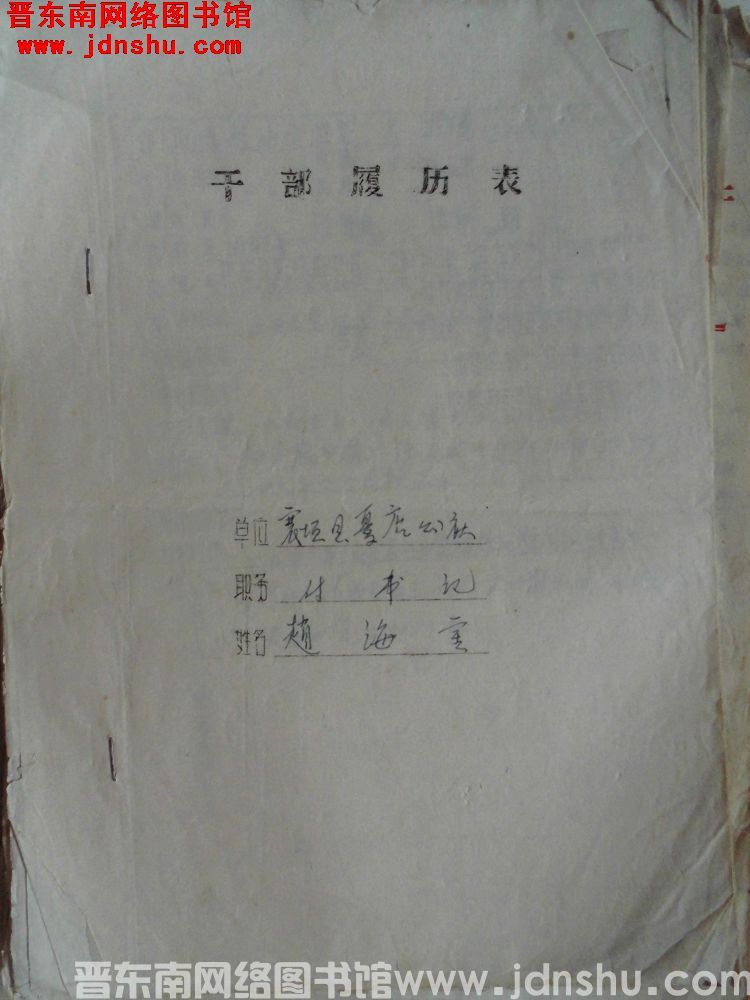 晋东南网络图书馆
www.jdnshu.com
干部履历表
单位 襄垣县夏店公社
职务 付书记
姓名 赵海
晋东南网络图书馆www.jdnshu.com